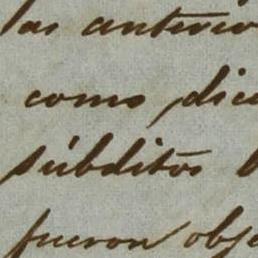 las anterio
como dice
súbditos
fueron obje